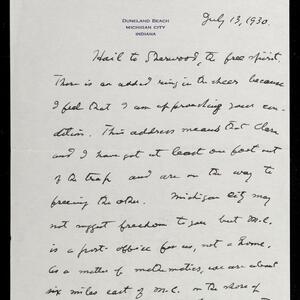 DUNELAND BEACH
MICHIGAN CITY
INDIANA
July 13, 1930.
Hail to Sherwood, the free spirit.
There is an added ring in the cheers because
I feel that I am approaching your con-
dition. This address means that Clara
and I have got at least one foot out
of the trap and are on the way to
freeing the other. Michigan City may
not suggest freedom to you but M.C.
is a post-office for us, not a home.
As a matter of mathematics, we are about
six miles east of M.C. on the shore of